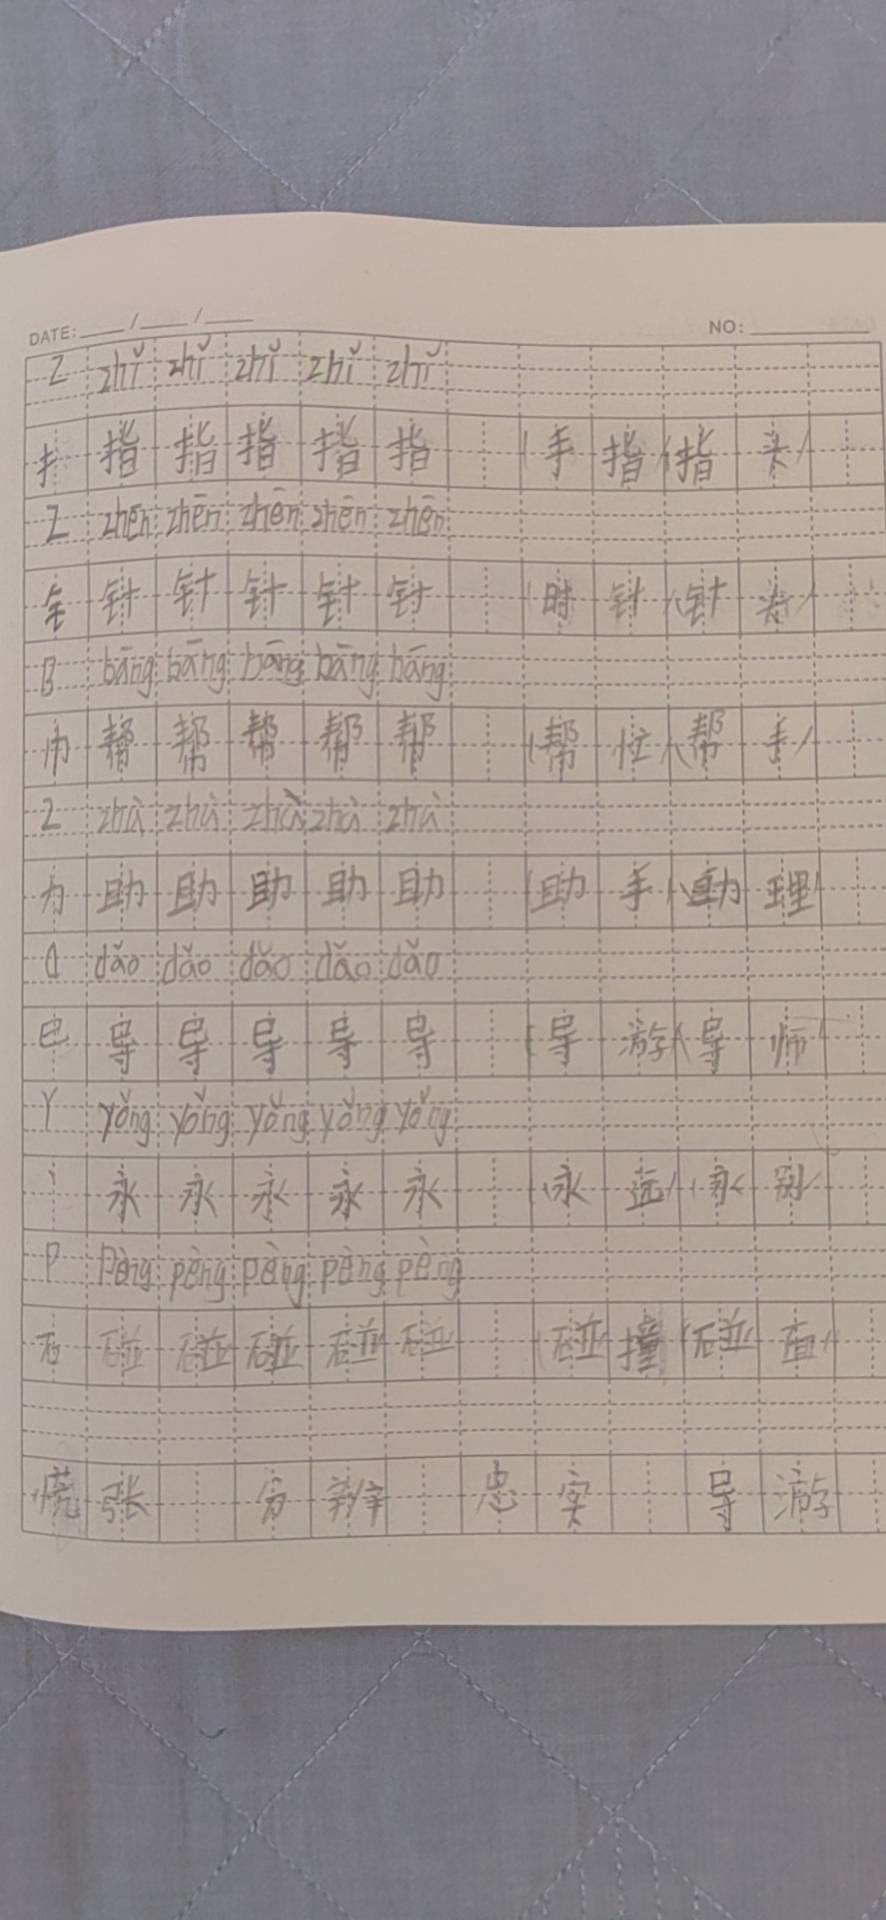 DATE: ___/___/___ NO: ___
Z zhǐ zhǐ zhǐ zhǐ zhǐ
扌 指 指 指 指 指 (手指)(指头)
Z zhēn zhēn zhēn zhēn zhēn
钅 针 针 针 针 针 (时针)(针头)
B bāng bāng bāng bāng bāng
巾 帮 帮 帮 帮 帮 (帮忙)(帮手)
Z zhù zhù zhù zhù zhù
力 助 助 助 助 助 (助手)(助理)
d dǎo dǎo dǎo dǎo dǎo
巳 导 导 导 导 导 (导游)(导师)
Y yǒng yǒng yǒng yǒng yǒng
丶 永 永 永 永 永 (永远)(永别)
P pèng pèng pèng pèng pèng
石 碰 碰 碰 碰 碰 (碰撞)(碰面)
慌张 分辨 忠实 导游